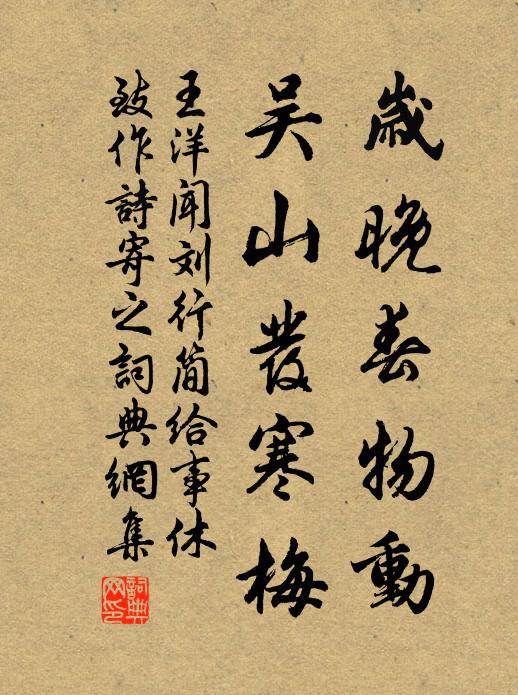 歲晚春物動
吴山發寒梅
王洋闻刘行简给事休
致作詩寄之詞典網集
詞典网印